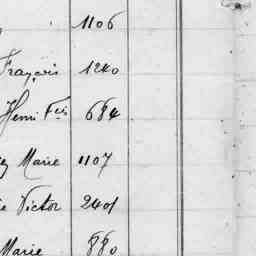 1106
François 1240
Henri Fçis 684
Marie 1107
Victor 2401
Marie 880